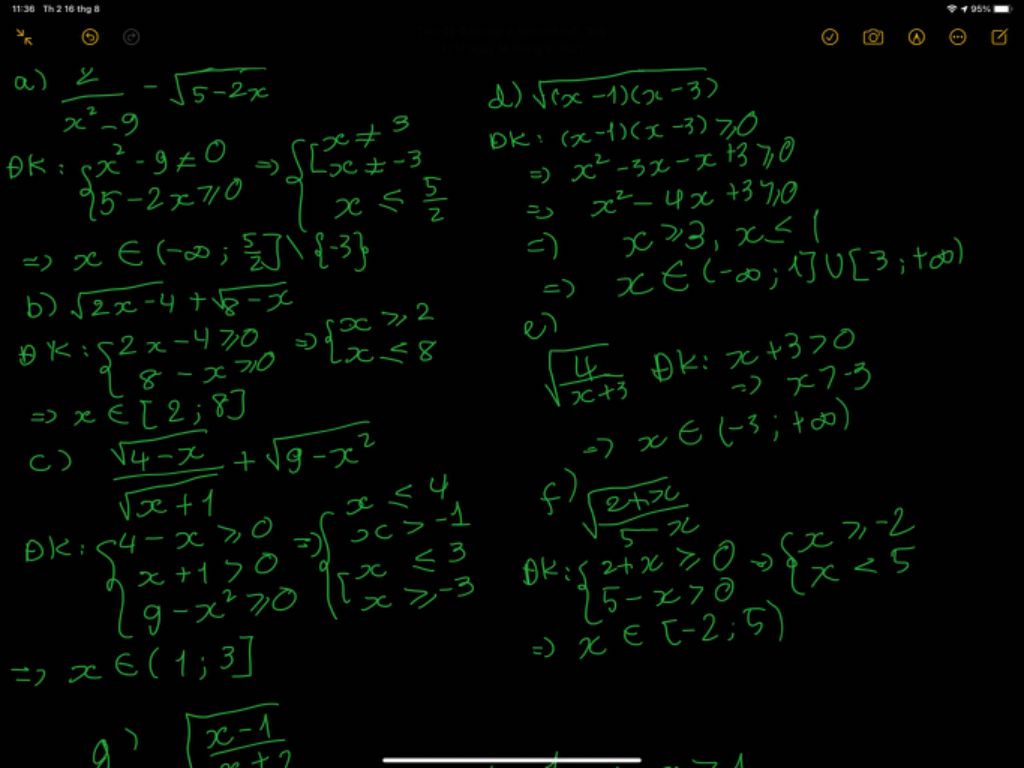 11:36 Th 2 16 thg 8
95%
a) 2/(x² - 9) - √(5-2x)
ĐK: { x² - 9 ≠ 0 => { [ x ≠ 3
5 - 2x ≥ 0 x ≠ -3
x ≤ 5/2
=> x ∈ (-∞; 5/2] \ {-3}
b) √(2x-4) + √(8-x)
ĐK: { 2x - 4 ≥ 0 => { x ≥ 2
8 - x ≥ 0 x ≤ 8
=> x ∈ [2; 8]
c) √(4-x)/√(x+1) + √(9-x²)
ĐK: { 4 - x ≥ 0 => { x ≤ 4
x + 1 > 0 x > -1
9 - x² ≥ 0 [ x ≤ 3
x ≥ -3
=> x ∈ (1; 3]
g) √((x-1)/(x+2
d) √((x-1)(x-3))
ĐK: (x-1)(x-3) ≥ 0
=> x² - 3x - x + 3 ≥ 0
=> x² - 4x + 3 ≥ 0
=> x ≥ 3, x ≤ 1
=> x ∈ (-∞; 1] ∪ [3; +∞)
e)
√(4/(x+3)) ĐK: x + 3 > 0
=> x > -3
=> x ∈ (-3; +∞)
f) √((2+x)/(5-x))
ĐK: { 2+x ≥ 0 => { x ≥ -2
5 - x > 0 x < 5
=> x ∈ [-2; 5)